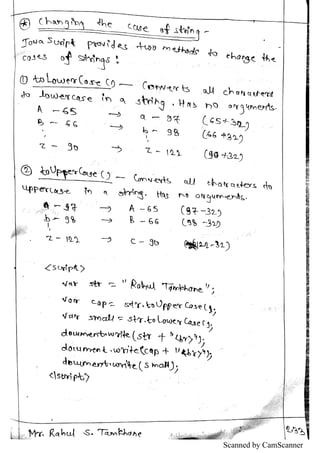 * Changing the case of string -
Java Script provides two methods to change the
cases of strings :
① toLowerCase () - Converts all characters
to lowercase in a string. Has no arguments.
A - 65 → a - 97 (65+32)
B - 66 → b - 98 (66+32)
Z - 90 → z - 122 (90+32)
② toUpperCase () - Converts all characters to
uppercase in a string. Has no arguments.
a - 97 → A - 65 (97-32)
b - 98 → B - 66 (98-32)
z - 122 → C - 90 (122-32)
<script>
var str = "Rahul Tamkhane";
var cap = str.toUpperCase();
var small = str.toLowerCase();
document.write(str + "<br>");
document.write(cap + "<br>");
document.write(small);
</script>
Mr. Rahul S. Tamkhane
Scanned by CamScanner